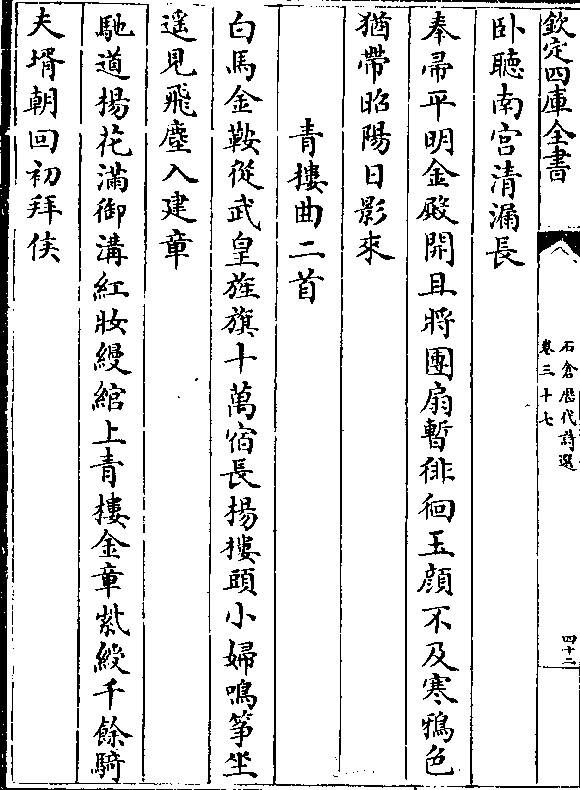 欽定四庫全書
石倉歴代詩選
卷三十七
四十二
卧聽南宫清漏長
奉帚平明金殿開且將團扇暫徘徊玉顔不及寒鴉色
猶帶昭陽日影來
青樓曲二首
白馬金鞍從武皇旌旗十萬宿長楊樓頭小婦鳴筝坐
遥見飛塵入建章
馳道揚花滿御溝紅妝縵綰上青樓金章紫綬千餘騎
夫壻朝回初拜侯